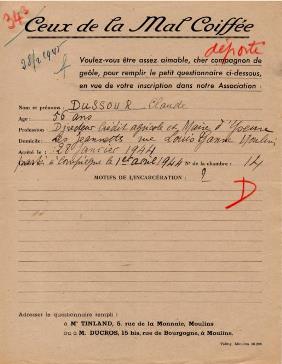 343
Ceux de la Mal Coiffée
28/2 1945
déporté
Voulez-vous être assez aimable, cher compagnon de
geôle, pour remplir le petit questionnaire ci-dessous,
en vue de votre inscription dans notre Association :
Nom et prénoms : DUSSOUR Claude
Age : 56 ans
Profession Directeur Crédit agricole et Maire d'Yzeure
Domicile : Les Jeannette rue Louis Moulins
Arrêté le : 28 Janvier 1944
parti à Compiègne le 1er avril 1944 N° de la chambre : 14
MOTIFS DE L'INCARCÉRATION : ?
D
Adresser le questionnaire rempli :
à Mr TINLAND, 6, rue de la Monnaie, Moulins
ou à M. DUCROS, 15 bis, rue de Bourgogne, à Moulins.